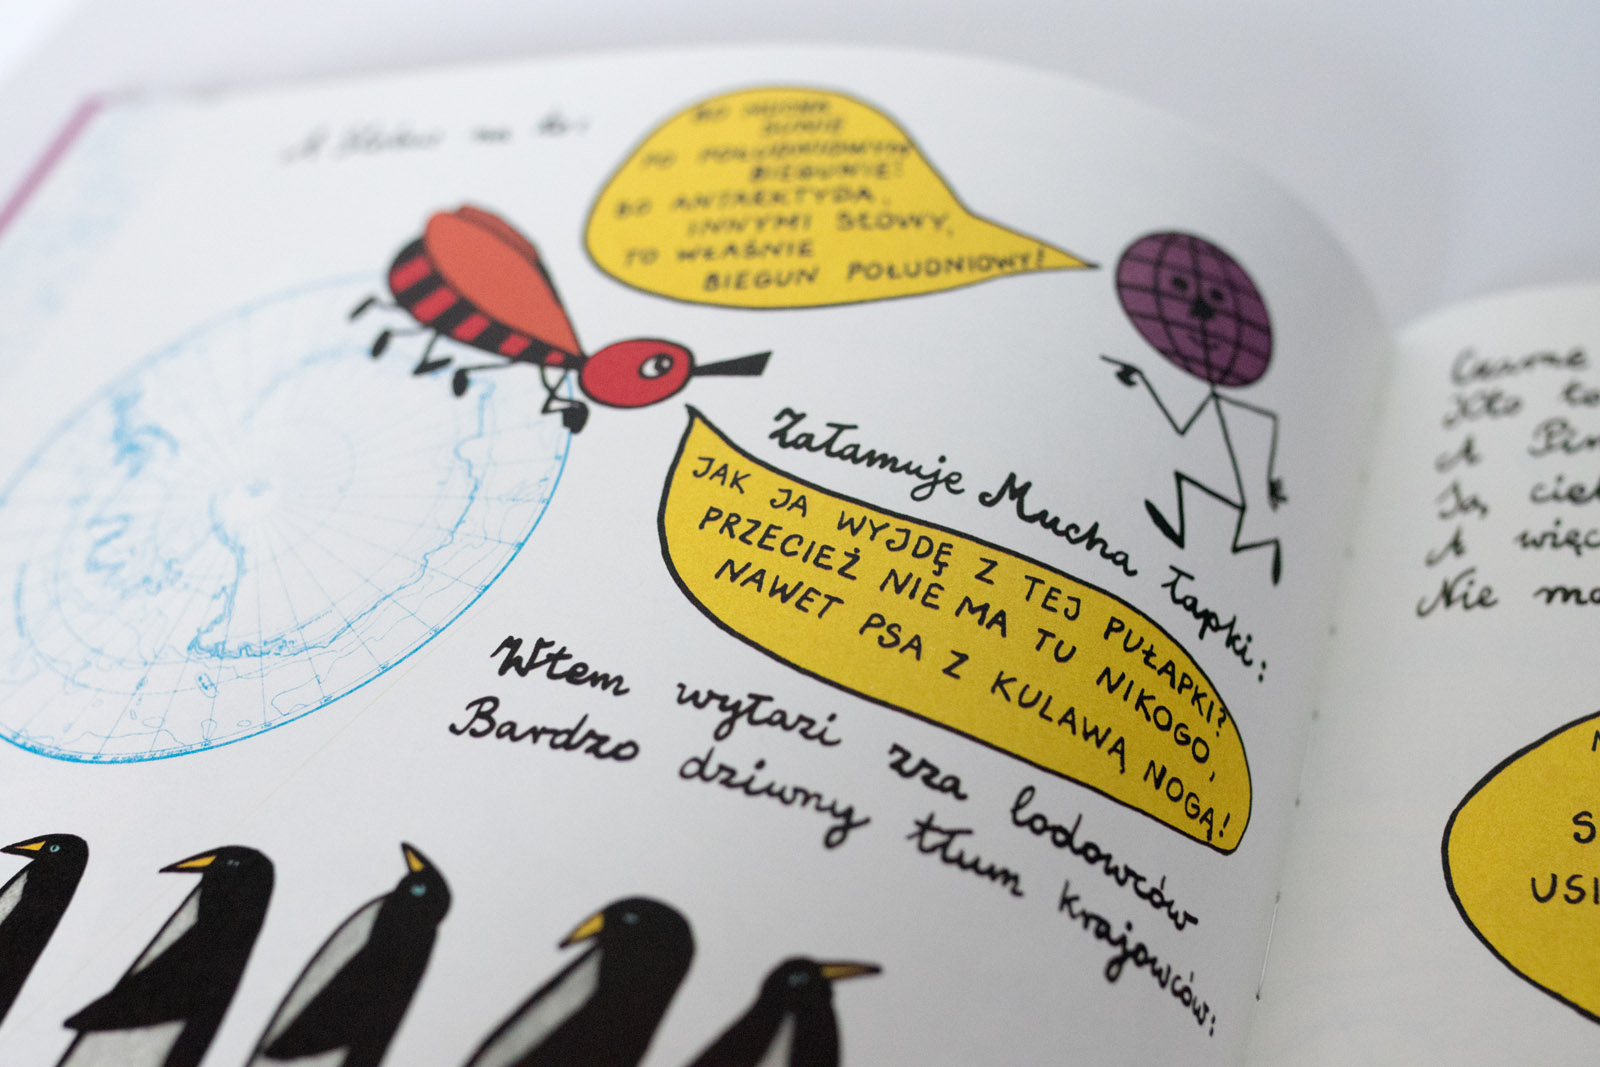 A na to:
BO MUCHA
SUNIE
PO POŁUDNIOWYM
BIEGUNIE!
BO ANTARKTYDA,
INNYMI SŁOWY,
TO WŁAŚNIE
BIEGUN POŁUDNIOWY!
Załamuje Mucha łapki:
JAK JA WYJDĘ Z TEJ PUŁAPKI?
PRZECIEŻ NIE MA TU NIKOGO,
NAWET PSA Z KULAWĄ NOGĄ!
Wtem wyłazi zza lodowców
Bardzo dziwny tłum krajowców:
Czarne
Kto to
A
Ja,
A więc
Nie
S
USI